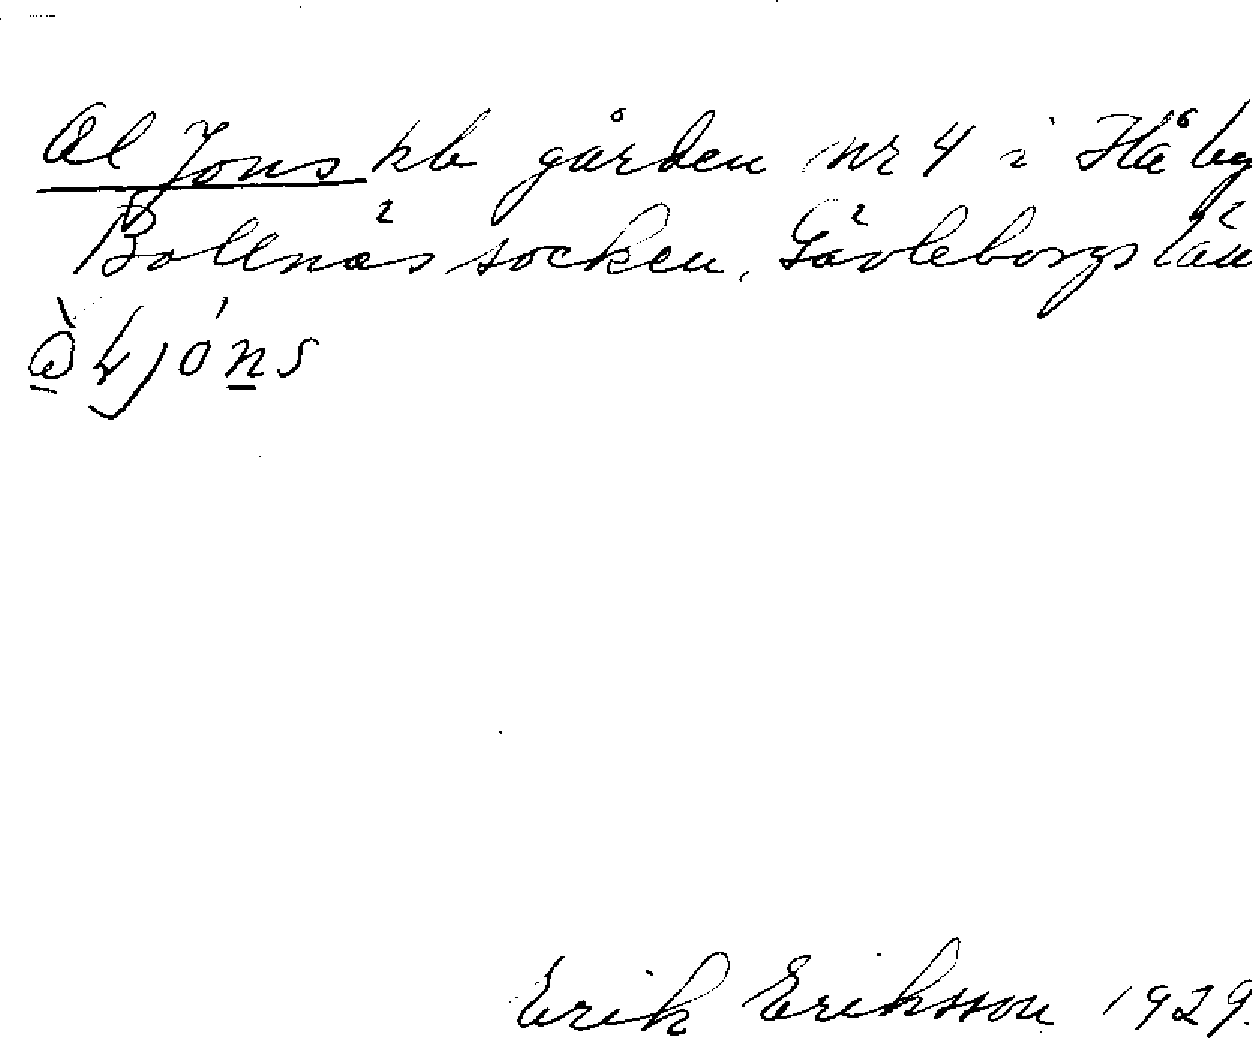 Ol Jons kb gården nr 4 i Hå by
Bollnäs socken, Gävleborgs län
Erik Eriksson 1929.